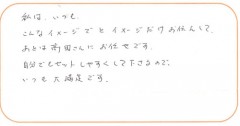 私は、いつも
こんなイメージでとイメージだけお伝えして、
あとは吉田さんにお任せです。
自分でもセットしやすくして下さるので、
いつも大満足です。